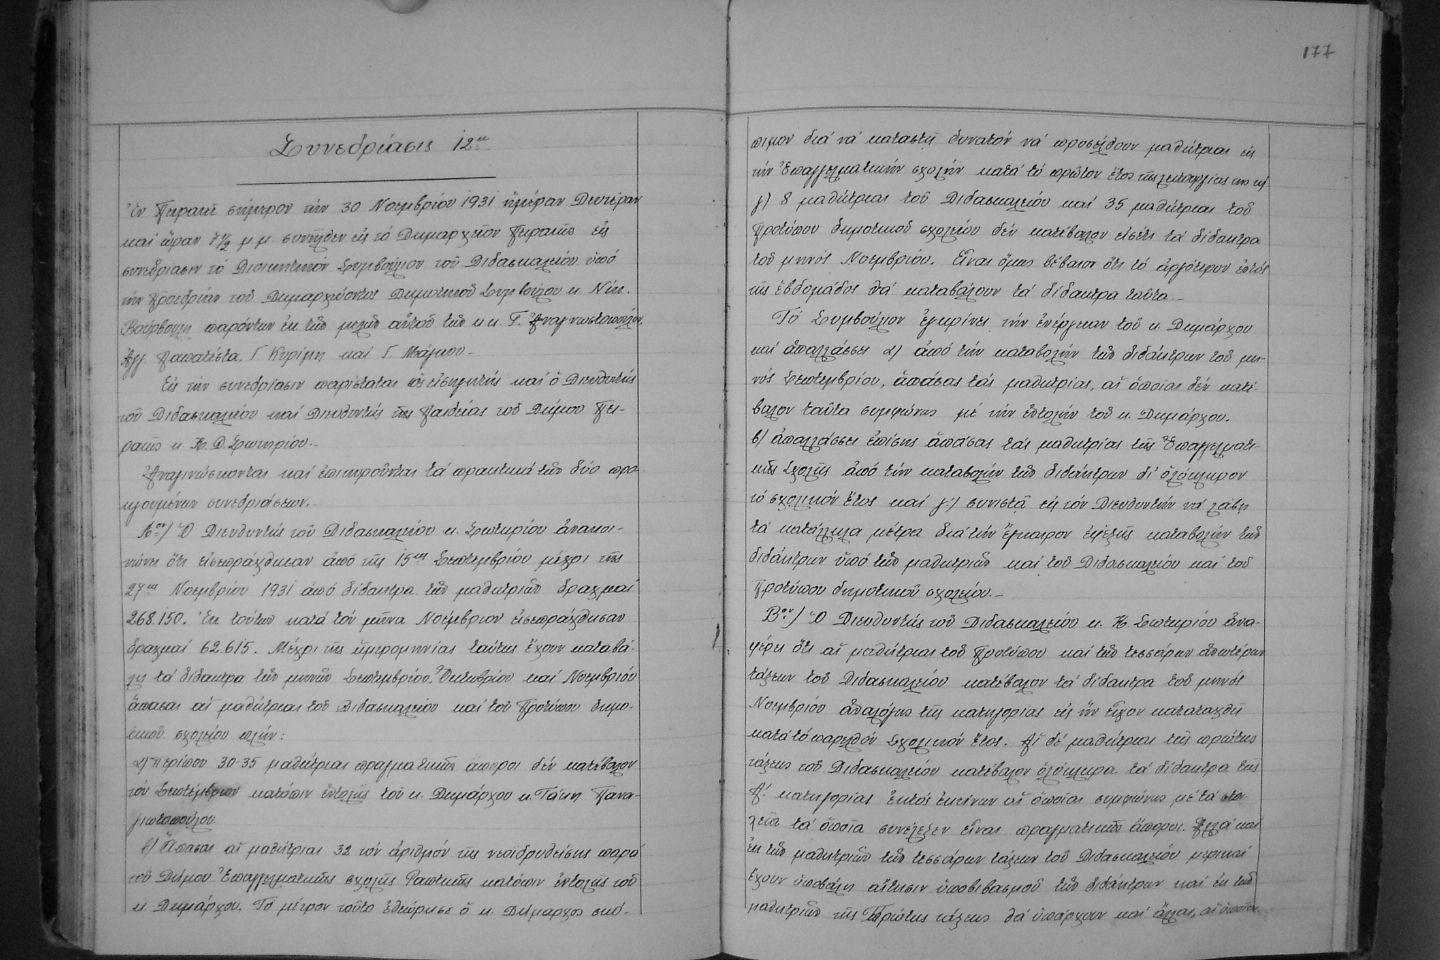 177
Συνεδρίασις 12η
Ἐν Πειραιεῖ σήμερον τήν 30 Νοεμβρίου 1931 ἡμέραν Δευτέραν
καί ὥραν 7½ μ.μ. συνῆλθεν εἰς τό Δημαρχεῖον Πειραιῶς εἰς
συνεδρίασιν τό Διοικητικόν Συμβούλιον τοῦ Διδασκαλείου ὑπό
τήν Προεδρίαν τοῦ Δημαρχεύοντος Δημοτικοῦ Συμβούλου κ. Νικ.
Βούρβουλη παρόντων ἐκ τῶν μελῶν αὐτοῦ τῶν κ.κ. Γ. Ἀναγνωστοπούλου,
Ἀγγ. Παπατέστα, Γ. Κυρίμη καί Γ. Μάγκου.-
Εἰς τήν συνεδρίασιν παρίσταται ὡς εἰσηγητής καί ὁ Διευθυντής
τοῦ Διδασκαλείου καί Διευθυντής τῆς Παιδείας τοῦ Δήμου Πει-
ραιῶς κ. Κ. Δ. Σωτηρίου.-
Ἀναγινώσκονται καί ἐπικυροῦνται τά πρακτικά τῶν δύο προ-
ηγουμένων συνεδριάσεων.-
Αον/ Ὁ Διευθυντής τοῦ Διδασκαλείου κ. Σωτηρίου ἀνακοι-
νώνει ὅτι εἰσεπράχθησαν ἀπό τῆς 15ης Σεπτεμβρίου μέχρι τῆς
27ης Νοεμβρίου 1931 ἀπό δίδακτρα τῶν μαθητριῶν δραχμαί
268.150. Ἐκ τούτων κατά τόν μῆνα Νοέμβριον εἰσεπράχθησαν
δραχμαί 62.615. Μέχρι τῆς ἡμερομηνίας ταύτης ἔχουν καταβά-
λει τά δίδακτρα τῶν μηνῶν Σεπτεμβρίου, Ὀκτωβρίου καί Νοεμβρίου
ἅπασαι αἱ μαθήτριαι τοῦ Διδασκαλείου καί τοῦ Προτύπου δημο-
τικοῦ σχολείου πλήν:
α) Περίπου 30-35 μαθήτριαι πραγματικῶς ἄποροι δέν κατέβαλον
τόν Σεπτέμβριον κατόπιν ἐντολῆς τοῦ κ. Δημάρχου κ. Τάκη Πανα-
γιωτοπούλου
β) Ἅπασαι αἱ μαθήτριαι 32 τόν ἀριθμόν τῆς νεοϊδρυθείσης παρά
τοῦ Δήμου Ἐπαγγελματικῆς σχολῆς Ραπτικῆς κατόπιν ἐντολῆς τοῦ
κ. Δημάρχου. Τό μέτρον τοῦτο ἐθεώρησε ὁ κ. Δήμαρχος σκό-
πιμον διά νά καταστῇ δυνατόν νά προσέλθουν μαθήτριαι εἰς
τήν Ἐπαγγελματικήν σχολήν κατά τό πρῶτον ἔτος τῆς λειτουργίας
γ) 8 μαθήτριαι τοῦ Διδασκαλείου καί 35 μαθήτριαι τοῦ
Προτύπου δημοτικοῦ σχολείου δέν κατέβαλον εἰσέτι τά δίδακτρα
τοῦ μηνός Νοεμβρίου. Εἶναι ὅμως βέβαιον ὅτι τό ἀργότερον ἐντός
τῆς ἑβδομάδος θά καταβάλουν τά δίδακτρα ταῦτα.-
Τό Συμβούλιον ἐγκρίνει τήν ἐνέργειαν τοῦ κ. Δημάρχου
καί ἀπαλλάσσει α) ἀπό τήν καταβολήν τῶν διδάκτρων τοῦ μη-
νός Σεπτεμβρίου, ἁπάσας τάς μαθητρίας, αἱ ὁποῖαι δέν κατέ-
βαλον ταῦτα συμφώνως μέ τήν ἐντολήν τοῦ κ. Δημάρχου.
β) ἀπαλλάσσει ἐπίσης ἁπάσας τάς μαθητρίας τῆς Ἐπαγγελματι-
κῆς Σχολῆς ἀπό τήν καταβολήν τῶν διδάκτρων δι' ὁλόκληρον
τό σχολικόν ἔτος καί γ) συνιστᾷ εἰς τόν Διευθυντήν νά λάβῃ
τά κατάλληλα μέτρα διά τήν ἔγκαιρον ἐφεξῆς καταβολήν τῶν
διδάκτρων ὑπό τῶν μαθητριῶν καί τοῦ Διδασκαλείου καί τοῦ
Προτύπου δημοτικοῦ σχολείου.-
Βον/ Ὁ Διευθυντής τοῦ Διδασκαλείου κ. Κ. Σωτηρίου ἀνα-
φέρει ὅτι αἱ μαθήτριαι τοῦ Προτύπου καί τῶν τεσσάρων ἀνωτέρων
τάξεων τοῦ Διδασκαλείου κατέβαλον τά δίδακτρα τοῦ μηνός
Νοεμβρίου ἀναλόγως τῆς κατηγορίας εἰς ἥν εἶχον καταταχθῆ
κατά τό παρελθόν Σχολικόν Ἔτος. Αἱ δέ μαθήτριαι τῆς πρώτης
τάξεως τοῦ Διδασκαλείου κατέβαλον ὁλόκληρα τά δίδακτρα τῆς
Α' κατηγορίας ἐκτός ἐκείνων αἱ ὁποῖαι συμφώνως μέ τά στοι-
χεῖα τά ὁποῖα συνέλεξεν εἶναι πραγματικῶς ἄποροι. Ἀλλά καί
ἐκ τῶν μαθητριῶν τῶν τεσσάρων τάξεων τοῦ Διδασκαλείου μερικαί
ἔχουν ὑποβάλη αἴτησιν ὑποβιβασμοῦ τῶν διδάκτρων καί ἐκ τῶν
μαθητριῶν τῆς Πρώτης τάξεως θά ὑπάρχουν καί ἄλλαι, αἱ ὁποῖαι